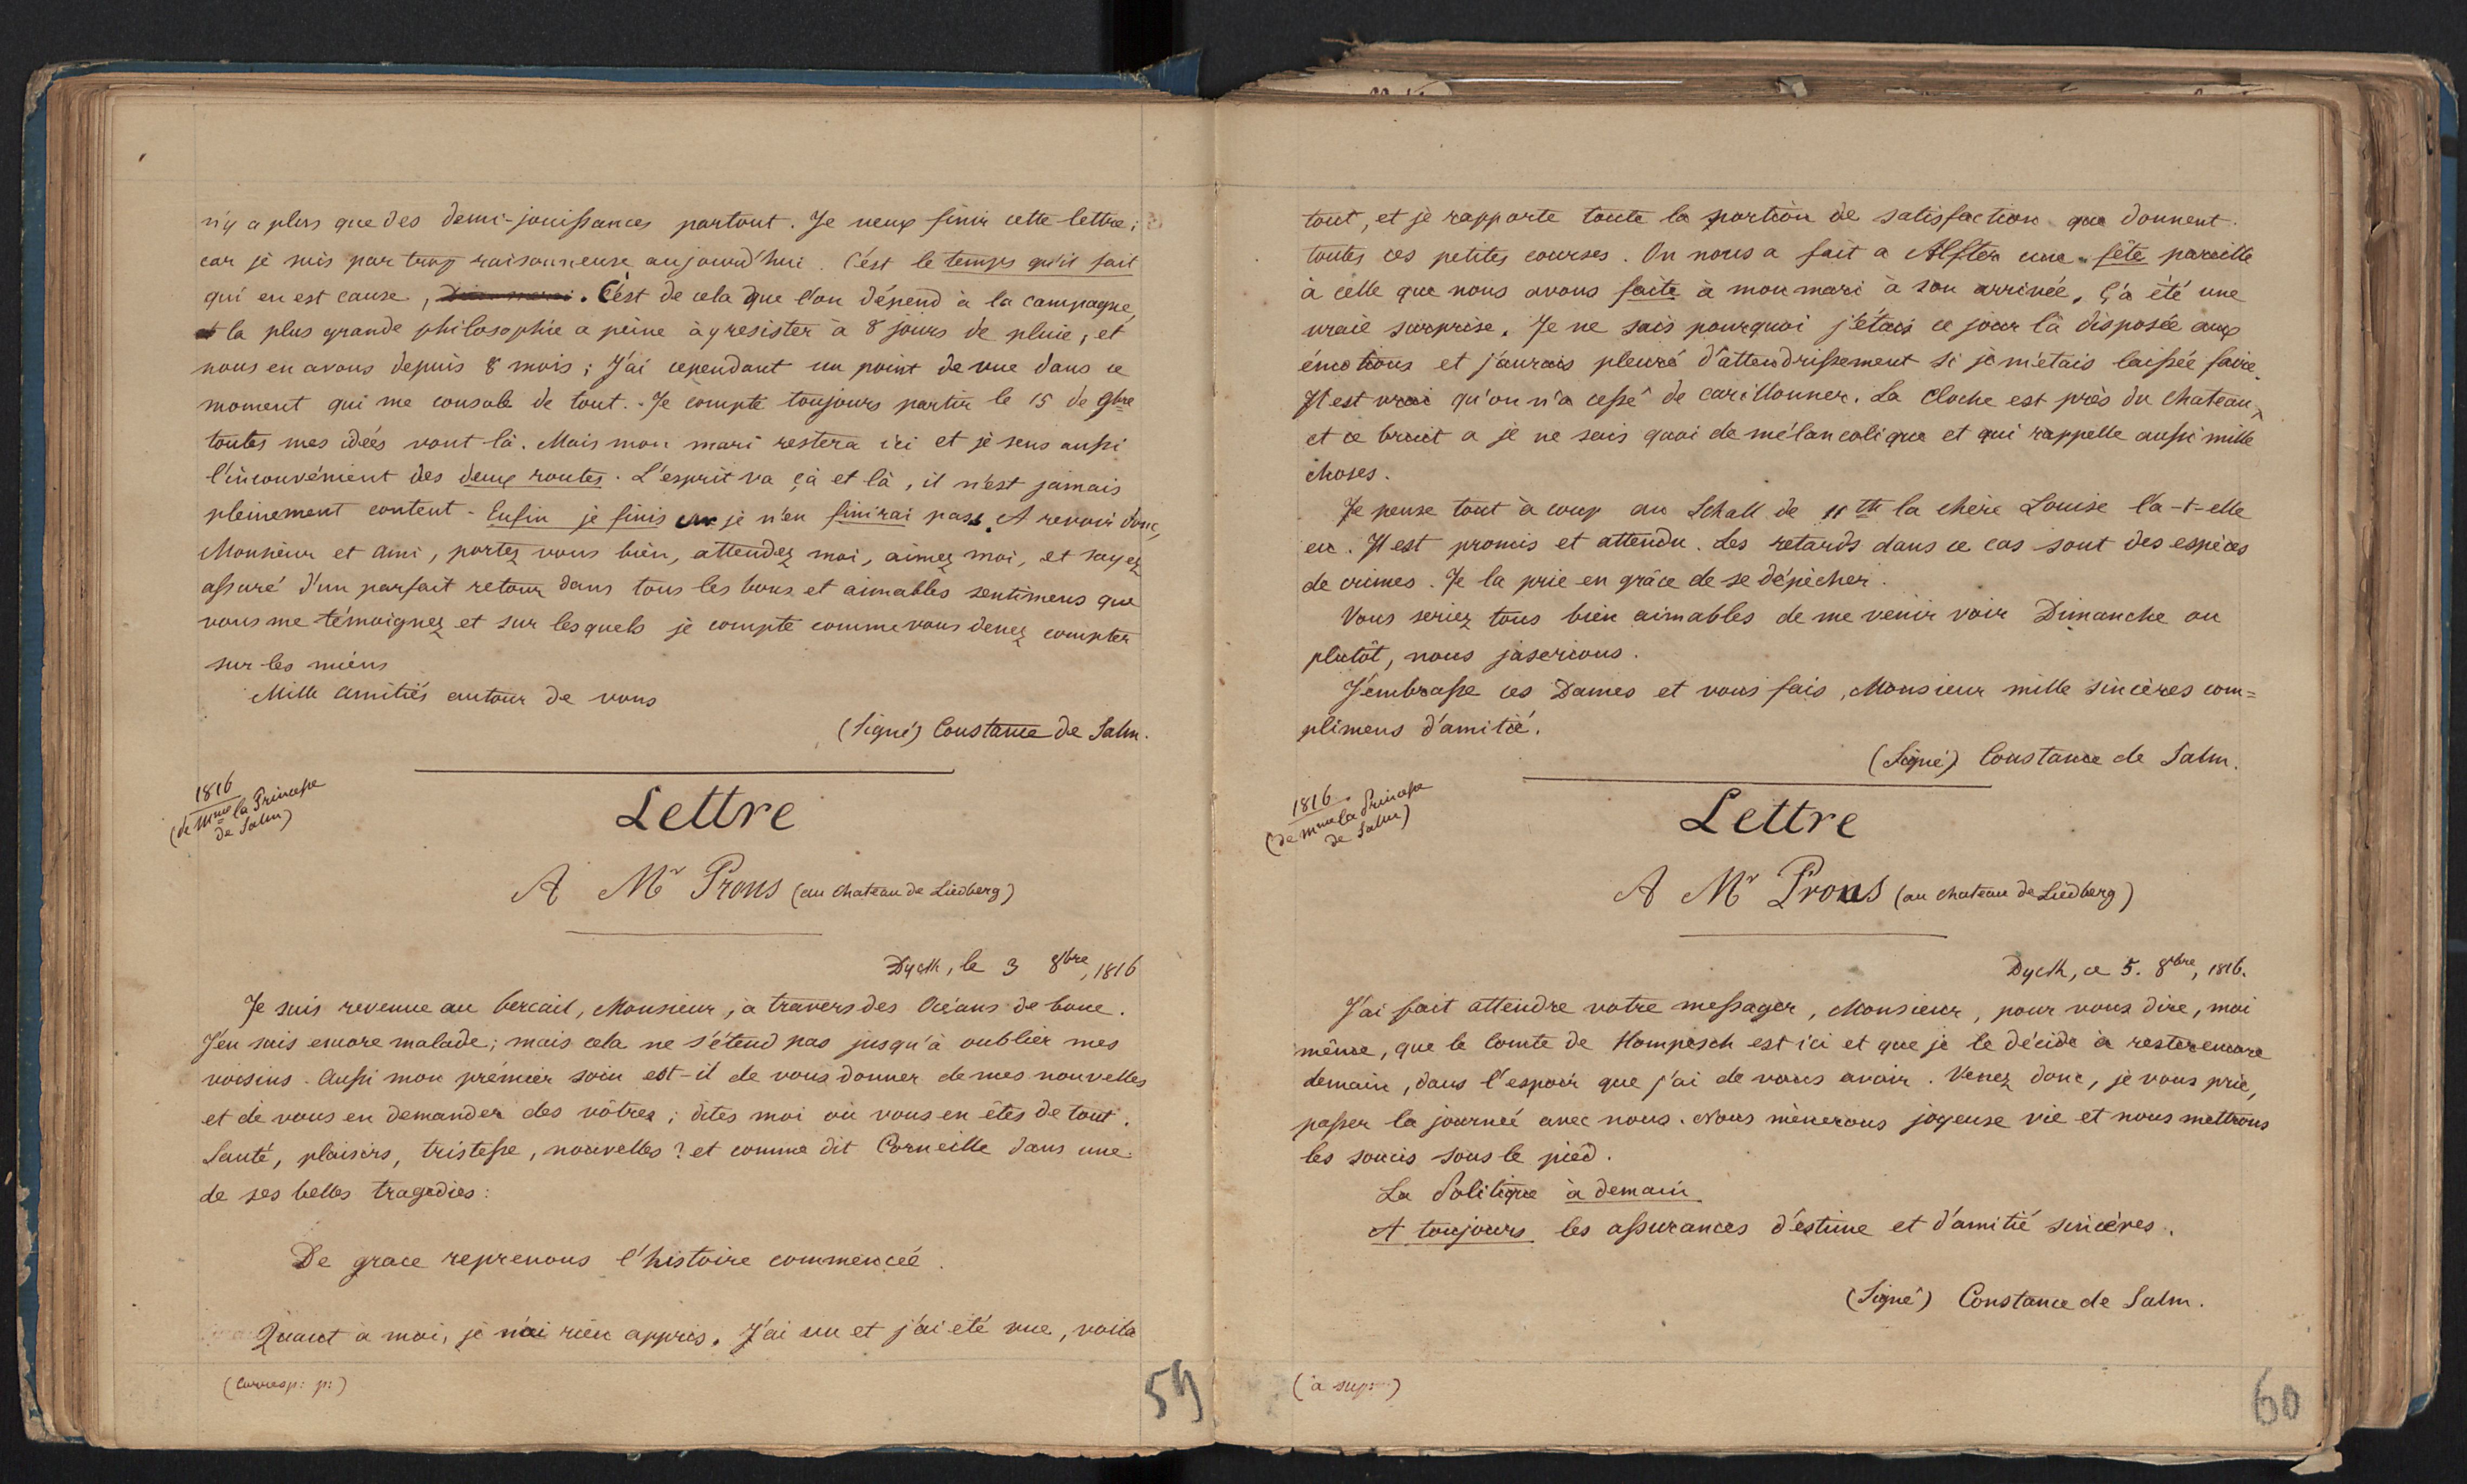 n'y a plus que des demi-jouissances partout. Je veux finir cette lettre;
car je suis par trop raisonneuse aujourd'hui. C'est le temps qu'il fait
qui en est cause, . C'est de cela que l'on dépend à la campagne,
la plus grande philosophie a peine à y resister à 8 jours de pluie, et
nous en avons depuis 8 mois; J'ai cependant un point de vue dans ce
moment qui me console de tout. Je compte toujours partir le 15 de 9bre
toutes mes idées vont là. Mais mon mari restera ici et je sens aussi
l'inconvénient des deux routes. L'esprit va çà et là, il n'est jamais
pleinement content. Enfin je finis car je n'en finirai pas. A revoir donc,
Monsieur et ami, portez vous bien, attendez moi, aimez moi, et soyez
assuré d'un parfait retour dans tous les bons et aimables sentimens que
vous me témoignez et sur lesquels je compte comme vous devez compter
sur les miens
Mille amitiés autour de vous
(Signé) Constance de Salm.
1816
(de Mme la Princesse
de Salm)
Lettre
A Mr Prous (au chateau de Liedberg)
Dyck, le 3 8bre, 1816
Je suis revenue au bercail, Monsieur, à travers des Océans de boue.
J'en suis encore malade; mais cela ne s'étend pas jusqu'à oublier mes
voisins. Aussi mon premier soin est-il de vous donner de mes nouvelles
et de vous en demander des vôtres; dites moi où vous en êtes de tout.
Santé, plaisirs, tristesse, nouvelles? et comme dit Corneille dans une
de ses belles tragedies:
De grace reprenons l'histoire commencée.
Quant à moi, je n'ai rien appris. J'ai vu et j'ai été vue, voilà
(Corresp: p:)
59
tout, et je rapporte toute la portion de satisfaction que donnent
toutes ces petites courses. On nous a fait a Alfter une fête pareille
à celle que nous avons faite à mon mari à son arrivée. Ç'a été une
vraie surprise. Je ne sais pourquoi j'étais ce jour là disposée aux
émotions et j'aurais pleuré d'attendrissement si je m'étais laissée faire.
Il est vrai qu'on n'a cessé de carillonner. La cloche est près du chateau,
et ce bruit a je ne sais quoi de mélancolique et qui rappelle aussi mille
choses.
Je pense tout à coup au Schall de 11 th la chère Louise l'a-t-elle
eu. Il est promis et attendu. Les retards dans ce cas sont des espèces
de crimes. Je la prie en grâce de se dépêcher.
Vous seriez tous bien aimables de me venir voir Dimanche ou
plutôt, nous jaserions.
J'embrasse ces Dames et vous fais, Monsieur mille sincères com=
plimens d'amitié.
(Signé) Constance de Salm.
1816.
(de Mme la Princesse
de Salm)
Lettre
A Mr Prous (au chateau de Liedberg)
Dyck, ce 5. 8bre, 1816.
J'ai fait attendre votre messager, Monsieur, pour vous dire, moi
même, que le Comte de Hompesch est ici et que je le décide à rester encore
demain, dans l'espoir que j'ai de vous avoir. Venez donc, je vous prie,
passer la journée avec nous. Nous mènerons joyeuse vie et nous mettrons
les soucis sous le pied.
La Politique à demain
A toujours les assurances d'estime et d'amitié sincères.
(Signé) Constance de Salm.
(à sup)
60